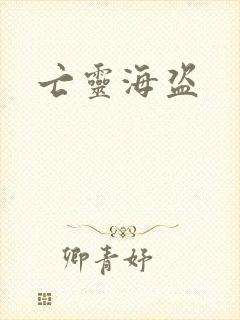 亡靈海盜
卿青妤